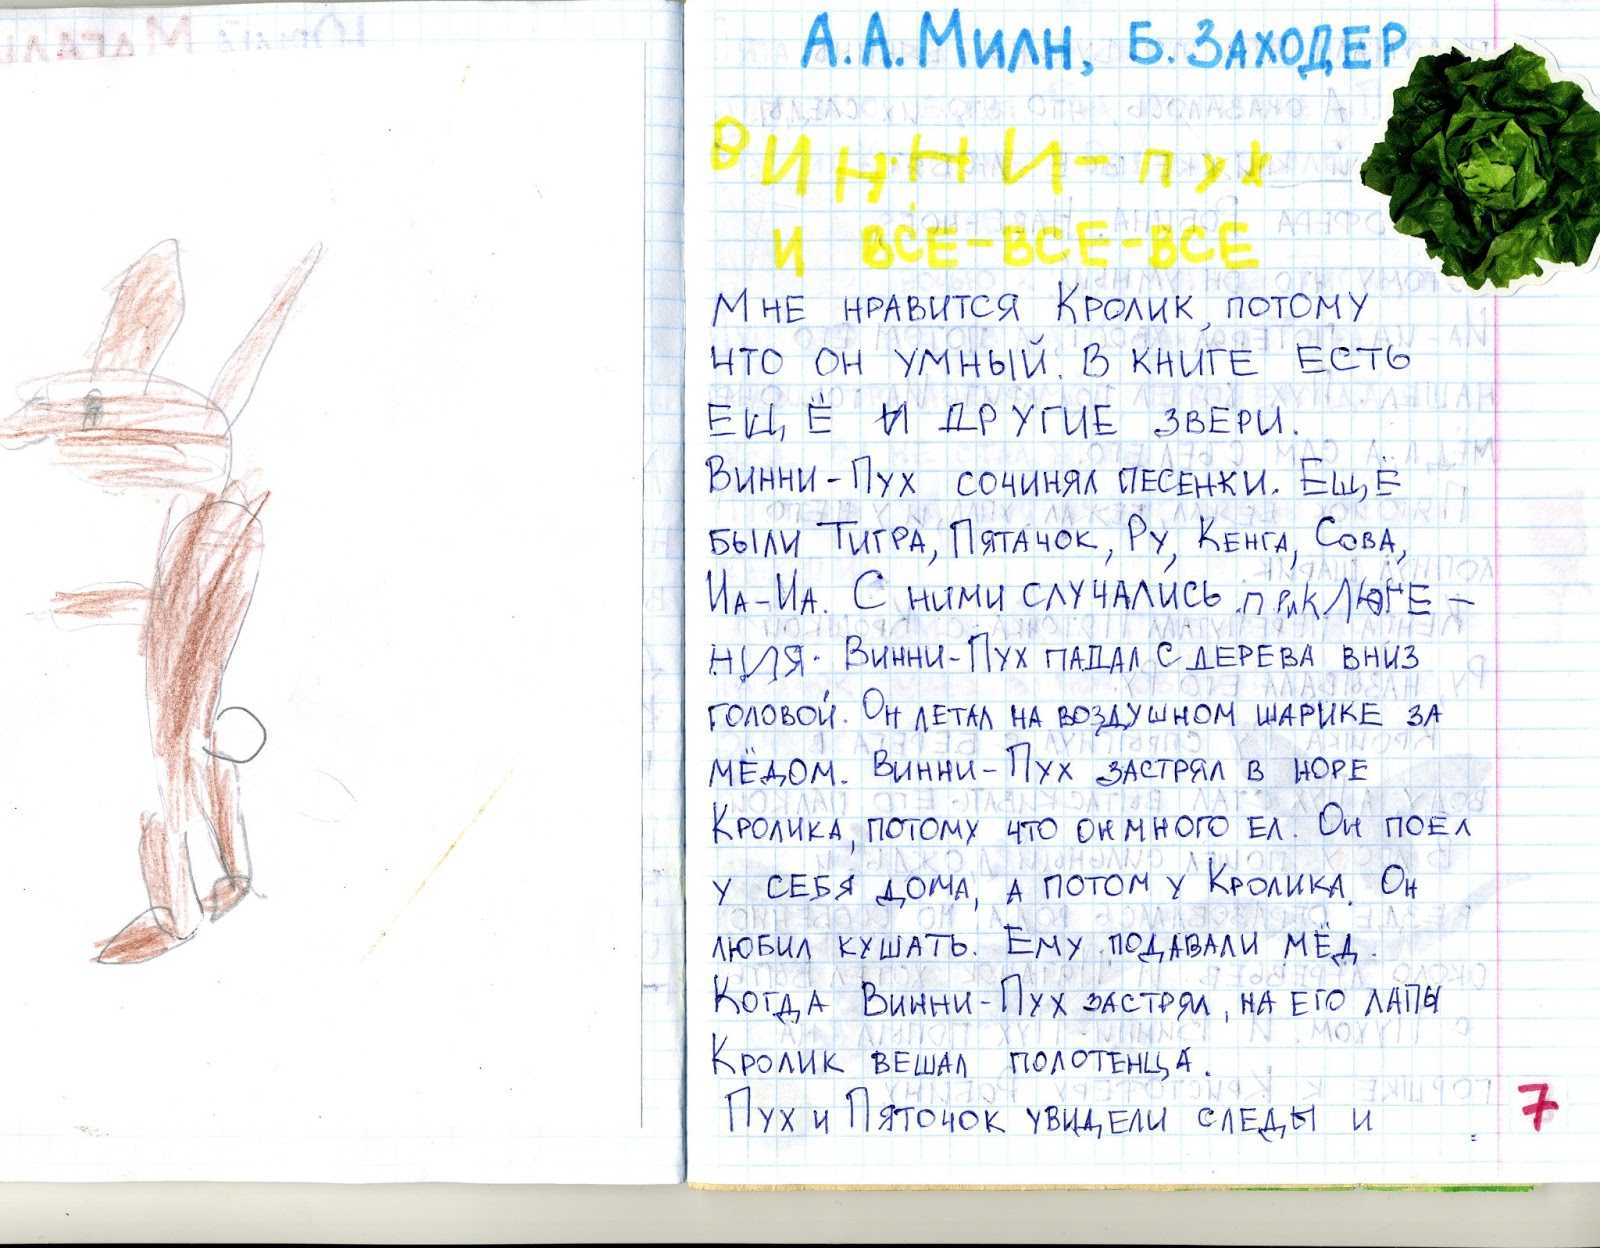 А.А.Милн, Б.Заходер
Винни-Пух
и все-все-все
Мне нравится Кролик, потому
что он умный. В книге есть
ещё и другие звери.
Винни-Пух сочинял песенки. Ещё
были Тигра, Пятачок, Ру, Кенга, Сова,
Иа-Иа. С ними случались приключе-
ния. Винни-Пух падал с дерева вниз
головой. Он летал на воздушном шарике за
мёдом. Винни-Пух застрял в норе
Кролика, потому что он много ел. Он поел
у себя дома, а потом у Кролика. Он
любил кушать. Ему подавали мёд.
Когда Винни-Пух застрял, на его лапы
Кролик вешал полотенца.
Пух и Пяточок увидели следы и
7